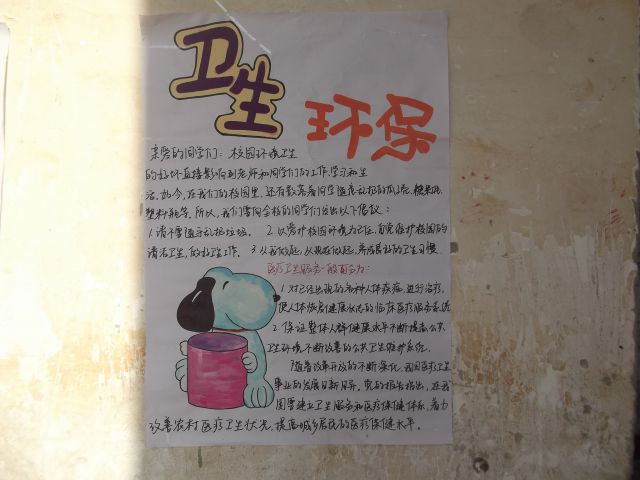 卫生
环保
亲爱的同学们：校园环境卫生
的好坏直接影响到老师和同学们的工作，学习和生
活。如今，在我们的校园里，还有数着同学随意乱扔的瓜子壳、糖果纸、
塑料瓶等。所以，我们要向全校的同学们发出以下倡议：
1.请不要随手乱扔垃圾。 2.以爱护校园环境为己任，自觉维护校园的
清洁卫生，做好卫生工作。 3.从我做起，从现在做起，养成良好的卫生习惯
医疗卫生服务一般面分为：
1.对已经出现的各种人体疾病，进行治疗，
使人体恢复健康状态的临床医疗服务系统
2.保证整体人群健康水平不断提高公共
卫生环境不断改善的公共卫生维护系统。
随着改革开放的不断深化，我国医疗卫生
事业的发展日新月异。党的报告指出，在我
国要建立卫生服务和医疗保健体系，着力
改善农村医疗卫生状况，提高城乡居民的医疗保健水平。